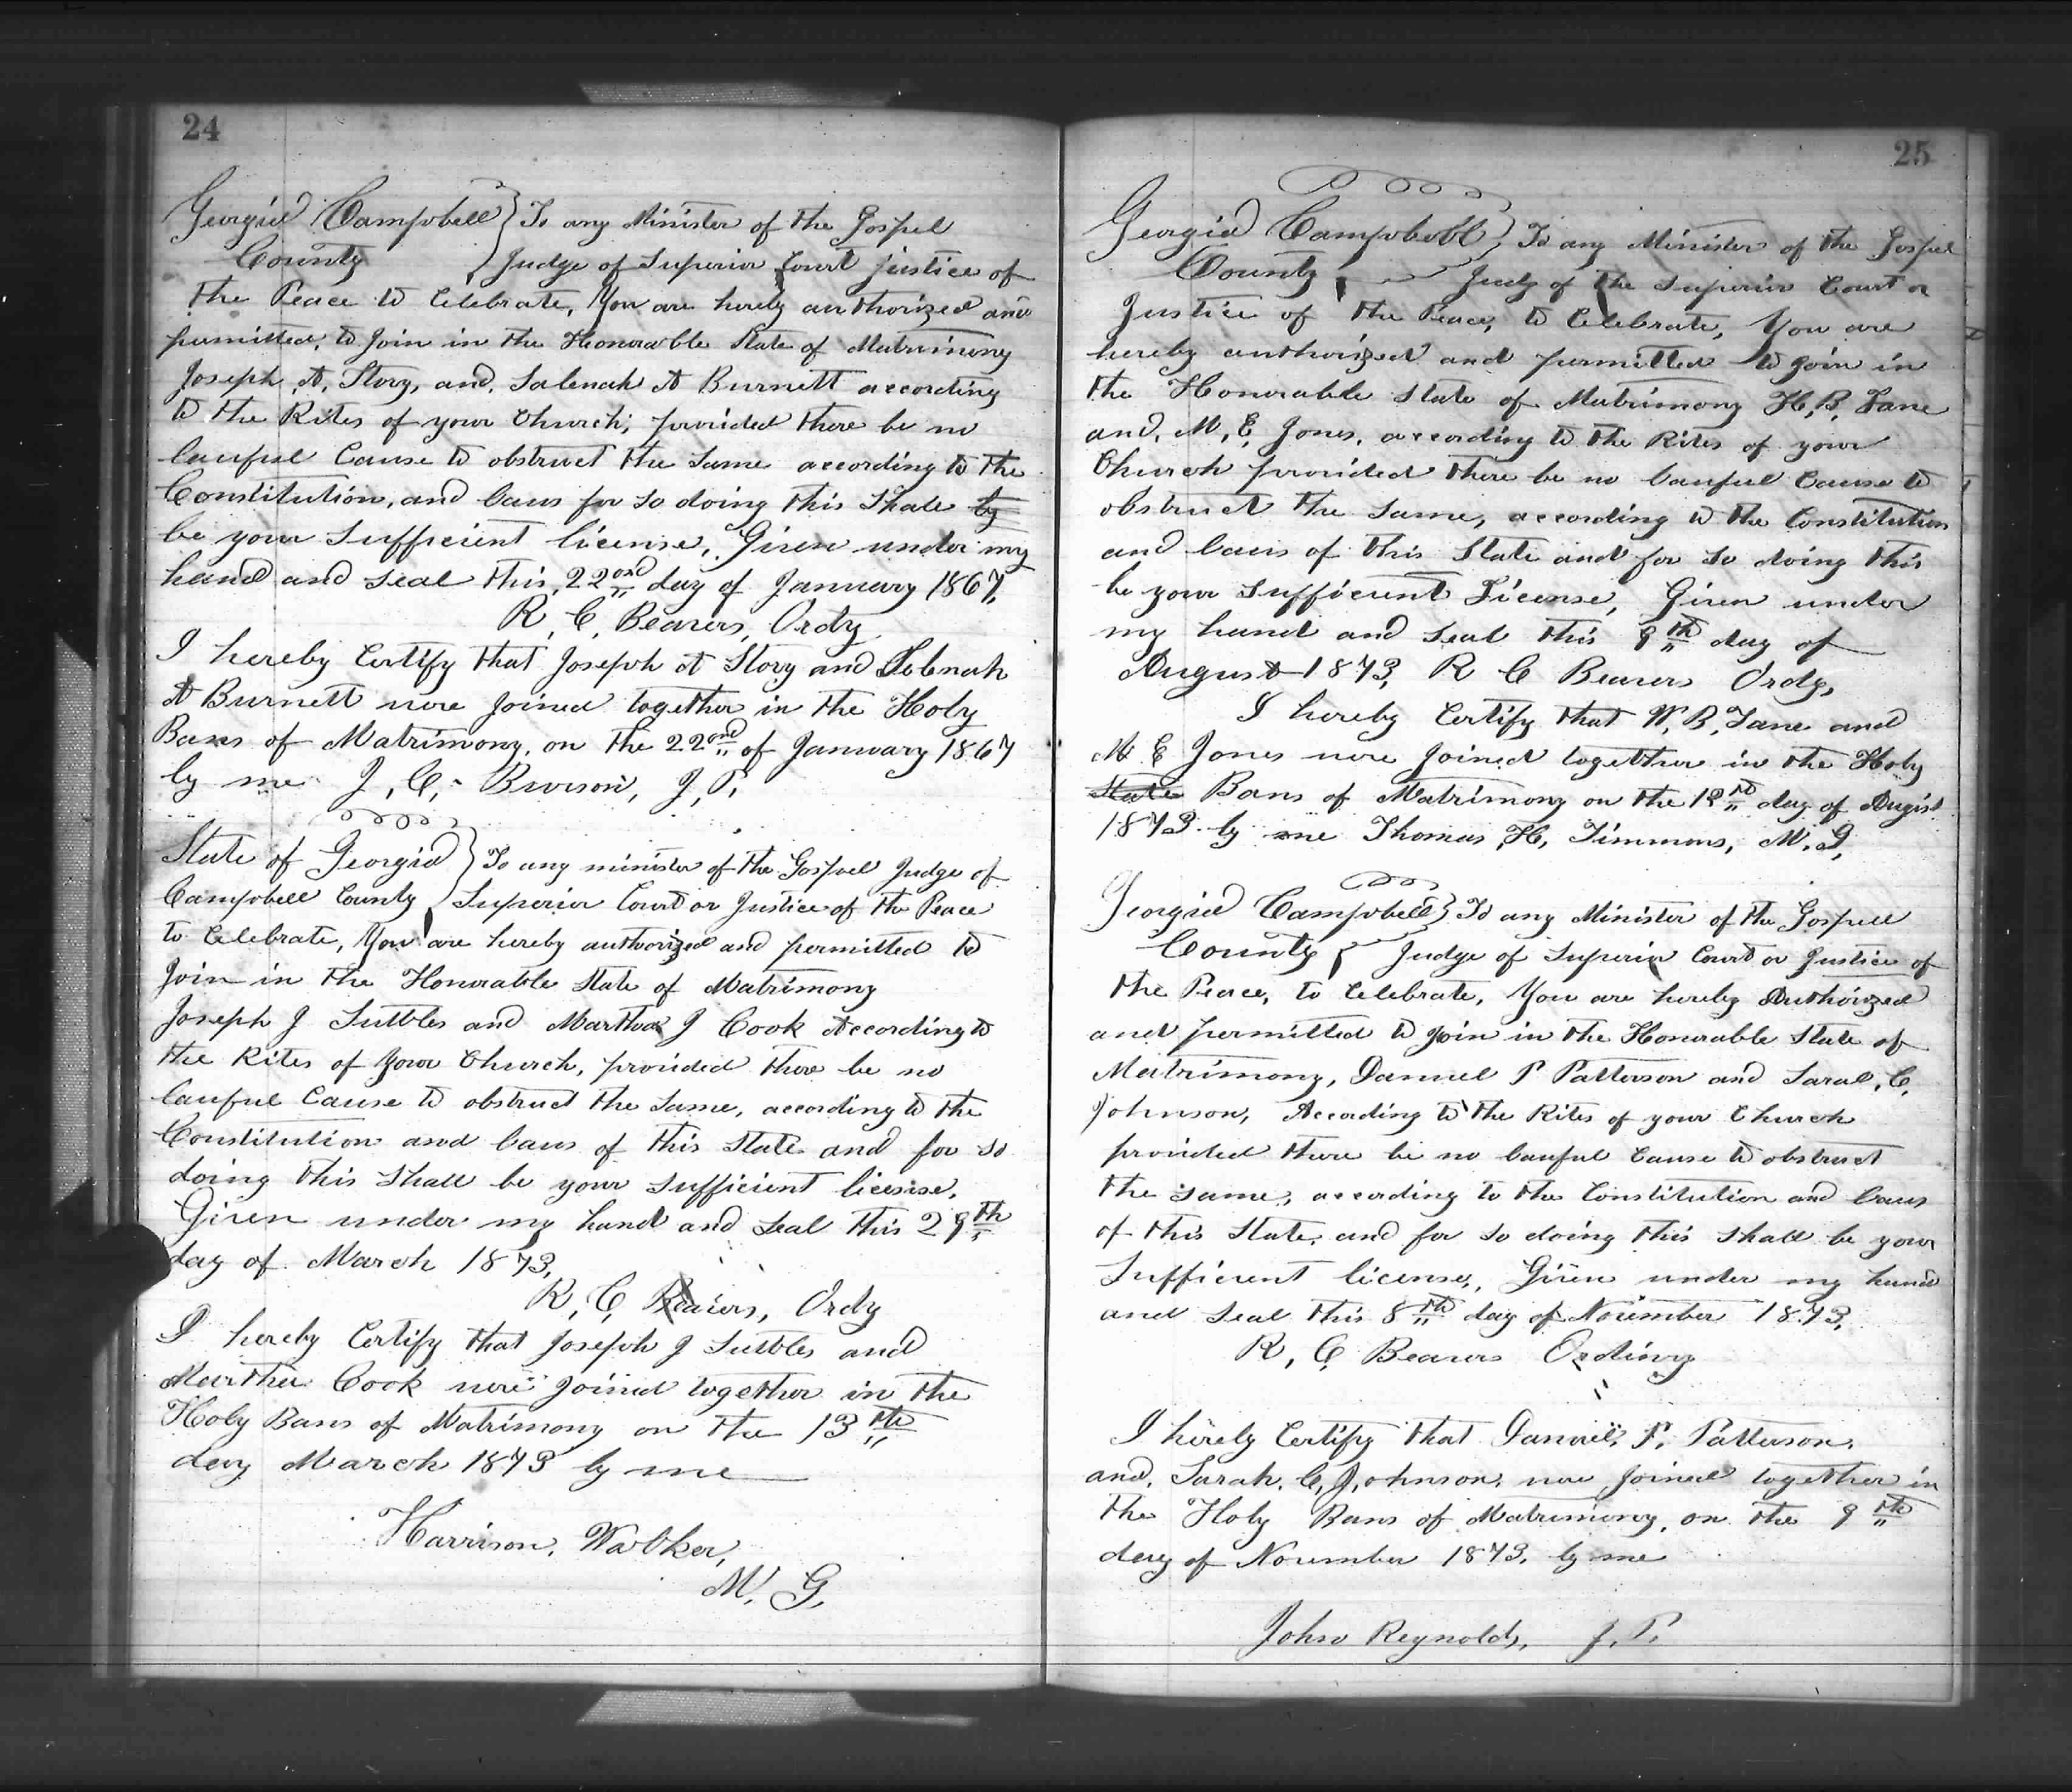 24
Georgia Campbell } To any Minister of the Gospel
County } Judge of Superior Court justice of
the Peace to Celebrate, You are hereby authorized and
permitted, to Join in the Honorable State of Matrimony
Joseph A, Story, and, Salenah A Burnett according
to the Rites of your Church, provided there be no
lawful Cause to obstruct the same according to the
Constitution, and laws for so doing this shall by
be your Sufficient license, Given under my
hand and seal this, 22ond day of January 1867,
R, C, Beavers, Ordy
I hereby Certify that Joseph A Story and
A Burnett were joined together in the Holy
Bans of Matrimony, on the 22ond of January 1867
by me J, C, J, P,
State of Georgia } To any minister of the Gospel Judge of
Campbell County } Superior Court or Justice of the Peace
to Celebrate, You are hereby authorized and permitted to
Join in the Honorable State of Matrimony
Joseph J Suttles and Martha J Cook According to
the Rites of Your Church, provided there be no
lawful Cause to obstruct the same, according to the
Constitution and laws of this State and for so
doing this Shall be your sufficient license,
Given under my hand and seal this 29th
day of March 1873,
R, C, Beavers, Ordy
I hereby Certify that Joseph J Suttles and
Martha Cook were joined together in the
Holy Bans of Matrimony on the 13th
day March 1873 by me
Harrison, Walker,
M, G,
25
Georgia Campbell } To any Minister of the Gospel
County, Judg of the Superior Court or
Justice of the Peace, to Celebrate, You are
hereby authorized and permitted to join in
the Honorable State of Matrimony H, B, Lane
and, M, E, Jones, according to the Rites of your
Church provided there be no lawful Cause to
obstruct the same, according to the Constitution
and laws of this State and for so doing this
be your sufficient License, Given under
my hand and seal this 9th day of
August 1873, R C Beavers Ordy,
I hereby Certify that W, B, Lane and
M E Jones were joined together in the Holy
State Bans of Matrimony on the day of Augist
1873 by me Thomas, H, Timmons, M, G,
Georgia Campbell } To any Minister of the Gospell
County, Judge of Superior Court or Justice of
the Peace, to Celebrate, You are hereby Authorized
and permitted to join in the Honorable State of
Matrimony, Danuel P Patterson and Sarah, C,
Johnson, According to the Rites of your Church
provided there be no lawful Cause to obstruct
the same, according to the Constitution and laws
of this State, and for so doing this shall be your
Sufficient license, Given under my hand
and seal this 8th day of November 1873,
R, C Beavers Ordinry
I hereby Certify that Daniel, P, Patterson,
and, Sarah, C, Johnson, were joined together in
the Holy Bans of Matrimony, on the 9th
day of November 1873, by me
John Reynolds, J, P,